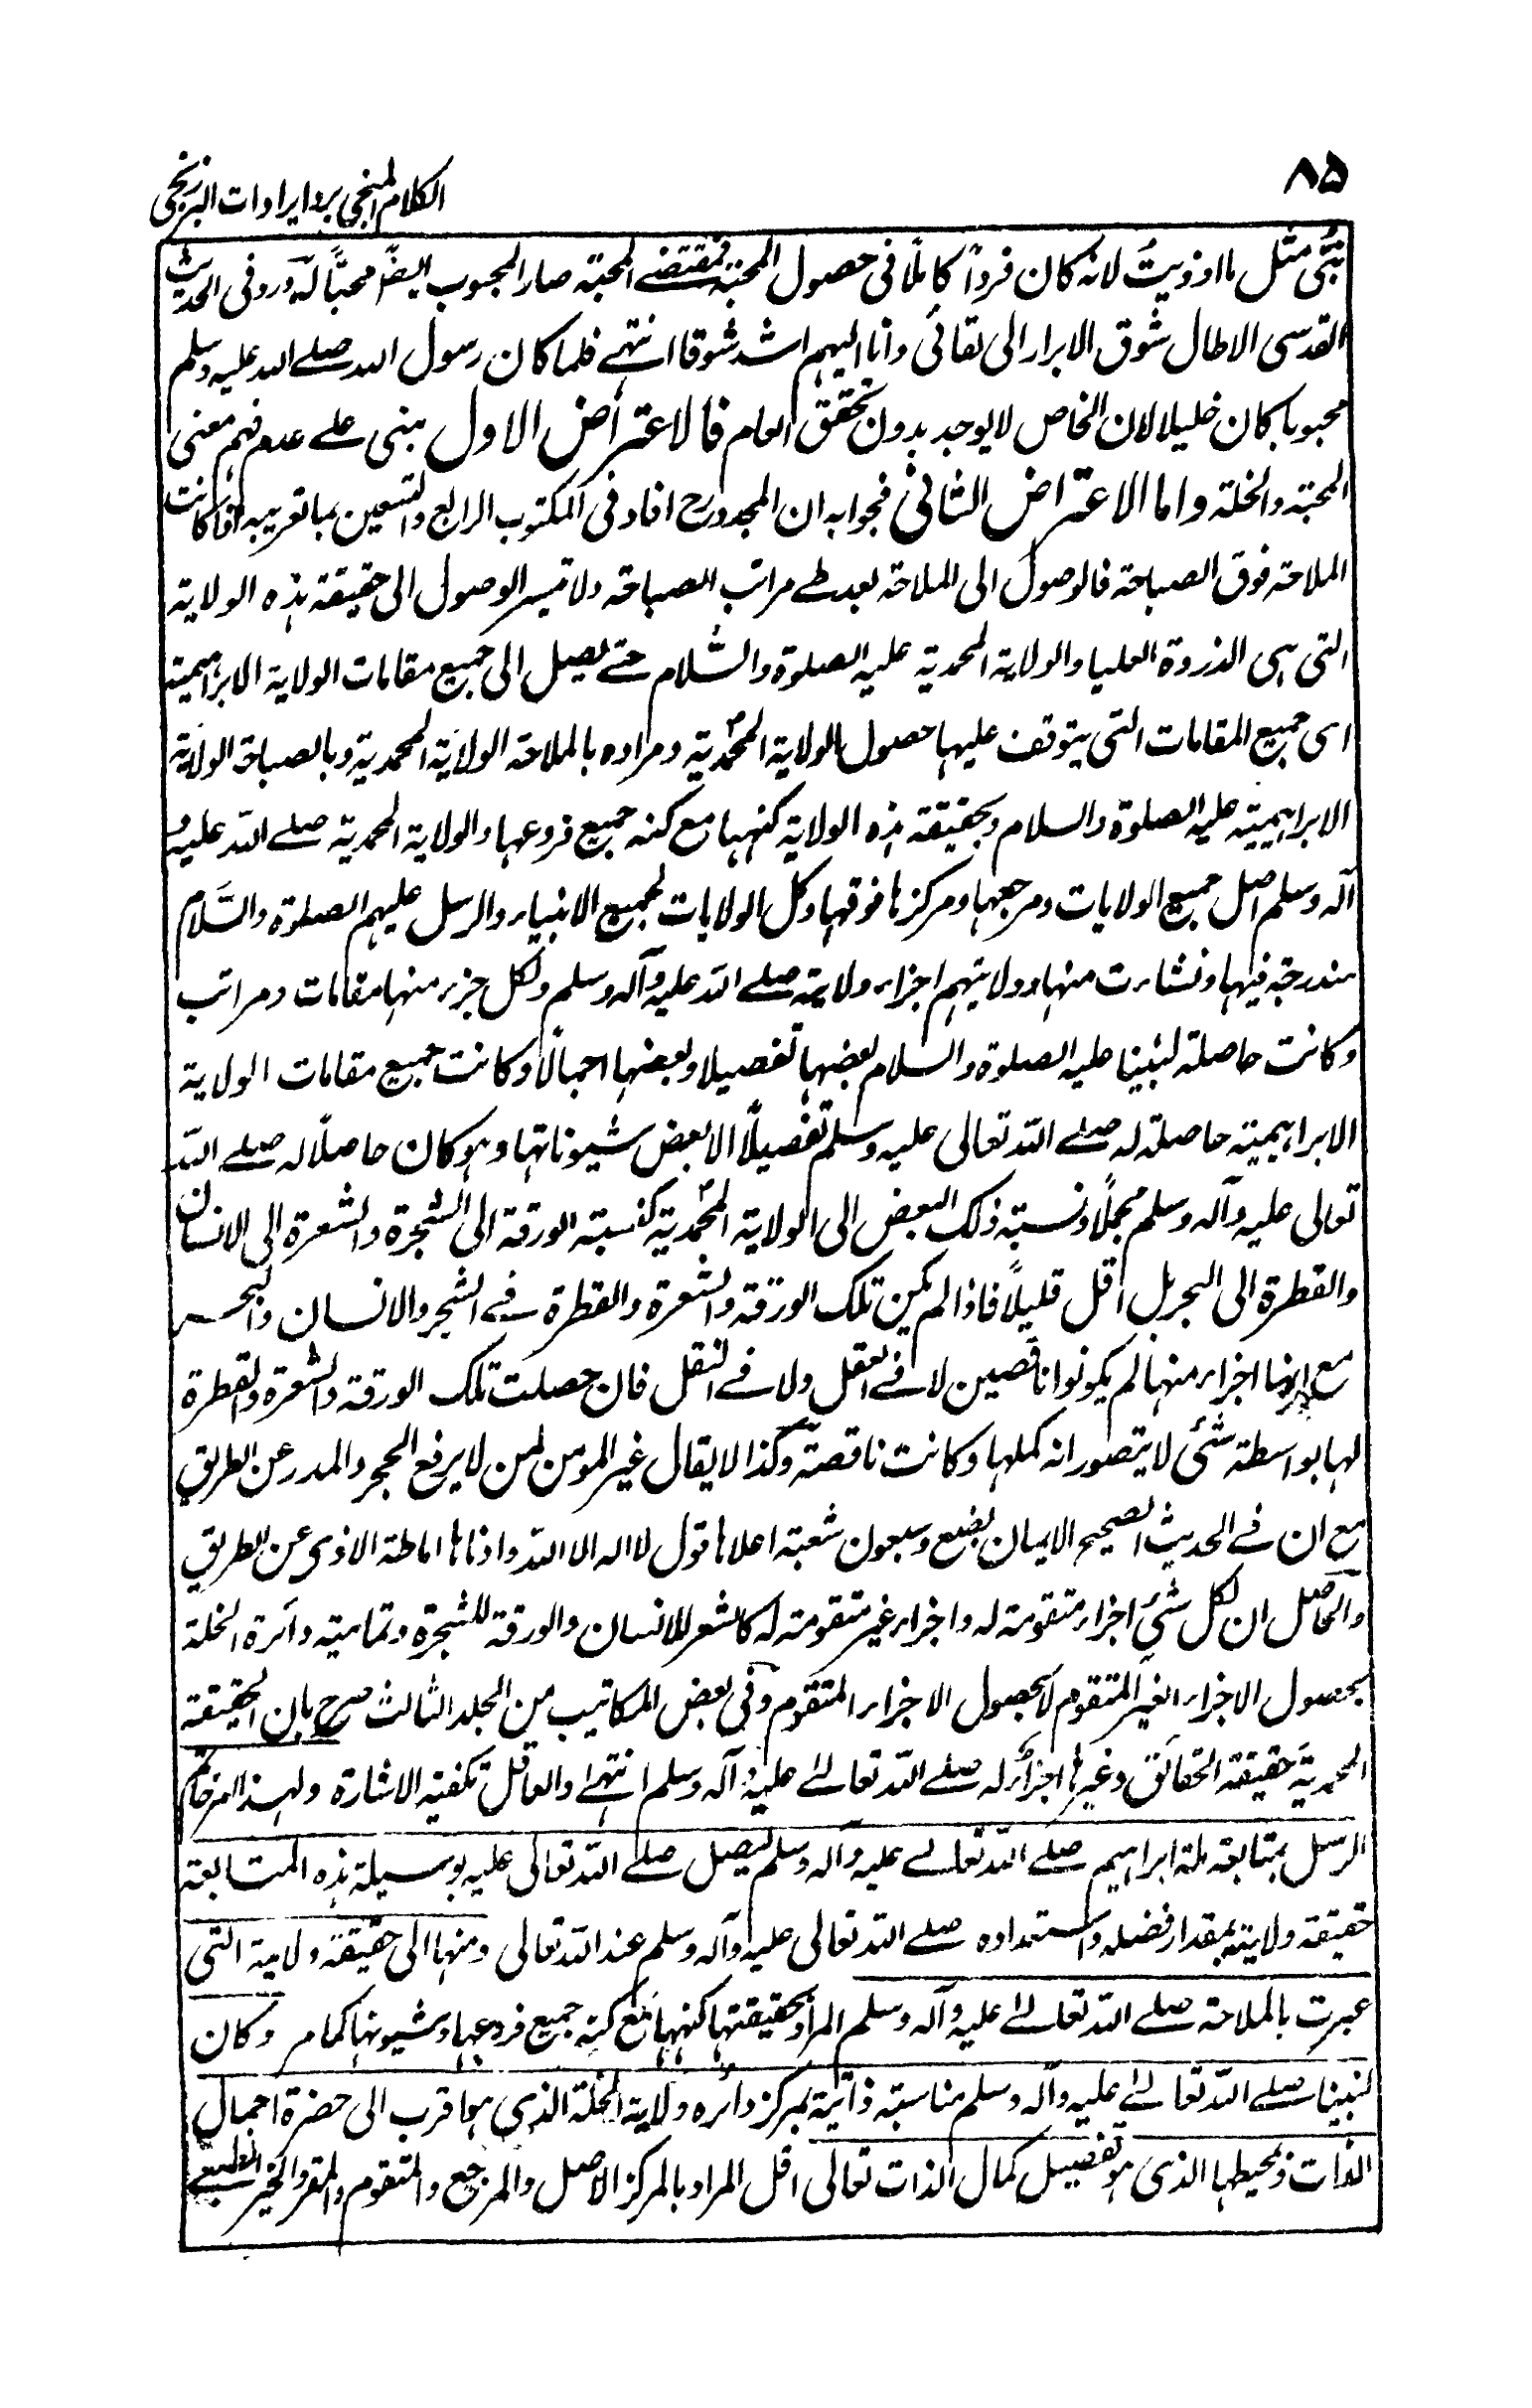 ٨٥
الكلام المنجى برد ايرادات البرزنجى
نبى مثل ما اوذيت لانه كان فرداً كاملاً فى حصول المحبة فمقتضے المحبة صار المحبوب ايضاً محباً له ورد فى الحديث
القدسى الا طال شوق الابرار الى لقائى وانا اليهم اشد شوقا انتهے فلما كان رسول الله صلے الله عليه وسلم
محبوبا كان خليلا لان الخاص لا يوجد بدون تحقق العام فالاعتراض الاول مبنى على عدم فهم معنى
المحبة والخلة واما الاعتراض الثانى فجوابه ان المجدد رح افاد فى المكتوب الرابع والتسعين بما تعريبه لما كانت
الملاحة فوق الصباحة فالوصول الى الملاحة بعد طے مراتب الصباحة ولا تيسر الوصول الى حقيقة هذه الولاية
التى هى الذروة العليا والولاية المحمدية عليه الصلوة والسلام حتے يصل الى جميع مقامات الولاية الابراهيمية
اى جميع المقامات التى يتوقف عليها حصول الولاية المحمدية ومراده بالملاحة الولاية المحمدية وبالصباحة الولاية
الابراهيمية عليه الصلوة والسلام وبحقيقة هذه الولاية كنهها مع كنه جميع فروعها والولاية المحمدية صلے الله عليه و
آله وسلم اصل جميع الولايات ومرجعها ومركزها فوقها وكل الولايات لجميع الانبياء والرسل عليهم الصلوة والسلام
مندرجة فيها ونشاءت منها وولايتهم اجزاء ولايته صلے الله عليه وآله وسلم ولكل جزء منها مقامات ومراتب
وكانت حاصلة لنبينا عليه الصلوة والسلام بعضها تفصيلا وبعضها اجمالاً وكانت جميع مقامات الولاية
الابراهيمية حاصلة له صلے الله تعالى عليه وسلم تفصيلاً الا بعض شيوناتها وهو كان حاصلاً له صلے الله
تعالى عليه وآله وسلم مجملاً ونسبة ذلك البعض الى الولاية المحمدية كنسبة الورقة الى الشجرة والشعرة الى الانسان
والقطرة الى البحر بل اقل قليلاً فاذا لم يكن تلك الورقة والشعرة والقطرة فے الشجر والانسان والبحر
مع انها اجزاء منها لم يكونوا ناقصين لا فے العقل ولا فے النقل فان حصلت تلك الورقة والشعرة والقطرة
لها بواسطة شئى لا يتصور انه كملها وكانت ناقصة وكذا لا يقال غير المؤمن لمن لا يرفع الحجر والمدر عن الطريق
مع ان فے الحديث الصحيح الايمان بضع وسبعون شعبة اعلاها قول لا اله الا الله وادناها اماطة الاذى عن الطريق
والحاصل ان لكل شئ اجزاء متقومة له واجزاء غير متقومة له كالشعر للانسان والورقة للشجرة وتمامية دائرة الخلة
بحصول الاجزاء الغير المتقوم لا بحصول الاجزاء المتقوم وفى بعض المكاتيب من الجلد الثالث صرح بان الحقيقة
المحمدية حقيقة الحقائق وغيرها اجزائه له صلے الله تعالے عليه وآله وسلم انتهے والعاقل تكفيه الاشارة ولهذا امر خاتم
الرسل بمتابعة ملة ابراهيم صلے الله تعالے عليه وآله وسلم ليصل صلے الله تعالى عليه بوسيلة هذه المتابعة
حقيقة ولايته بمقدار فضله واستعداده صلے الله تعالى عليه وآله وسلم عند الله تعالى ومنها الى حقيقة ولاية التى
عبرت بالملاحة صلے الله تعالے عليه وآله وسلم المراد بحقيقتها كنهها مع كنه جميع فروعها وشيونها كما مر وكان
لنبينا صلے الله تعالے عليه وآله وسلم مناسبة ذاتية بمركز دائره ولاية الخلة الذى هو اقرب الى حضرة اجمال
الذات ومحيطها الذى هو تفصيل كمال الذات تعالى اقل المراد بالمركز الاصل والمرجع والمتقوم والمقر والخير الطبيعے